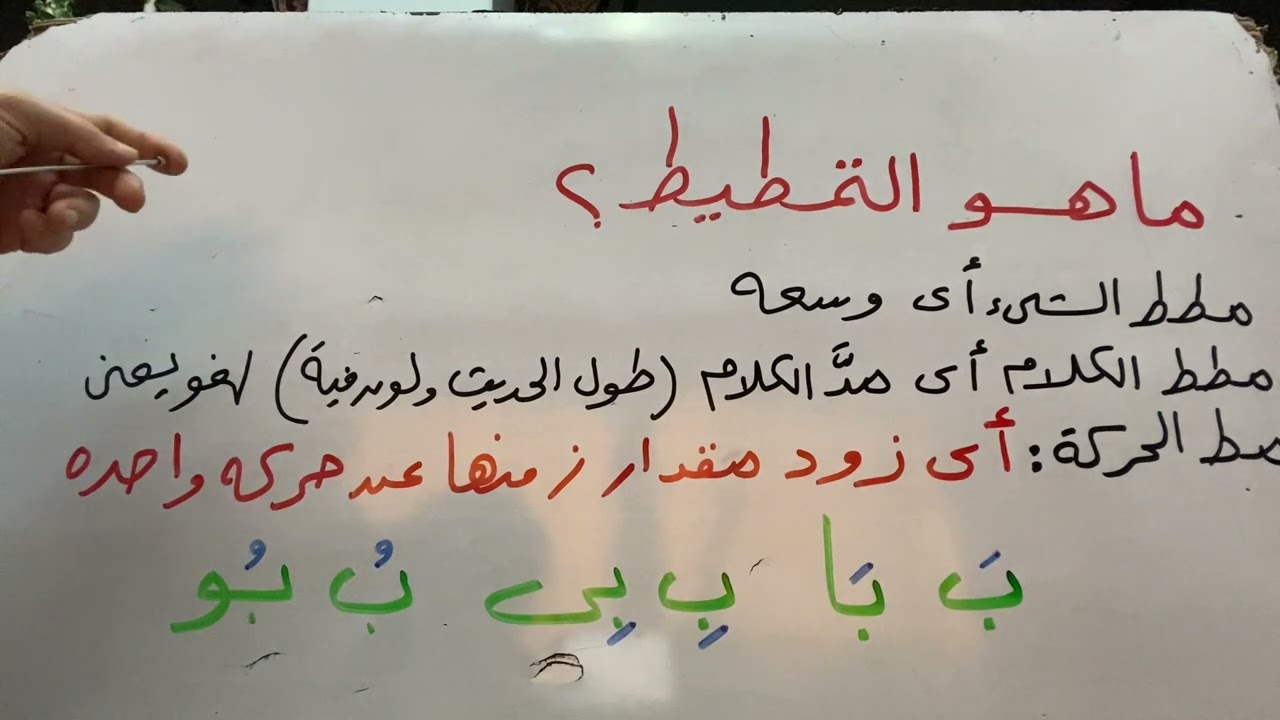 ما هو التمطيط؟
مطط الشىء أى وسعه
مطط الكلام أى مدَّ الكلام (طول الحديث ولونه فية) لغويعنى
مطط الحركة: أى زود مقدار زمنها عند حركه واحده
بَ بَا بِ بِى بُ بُو